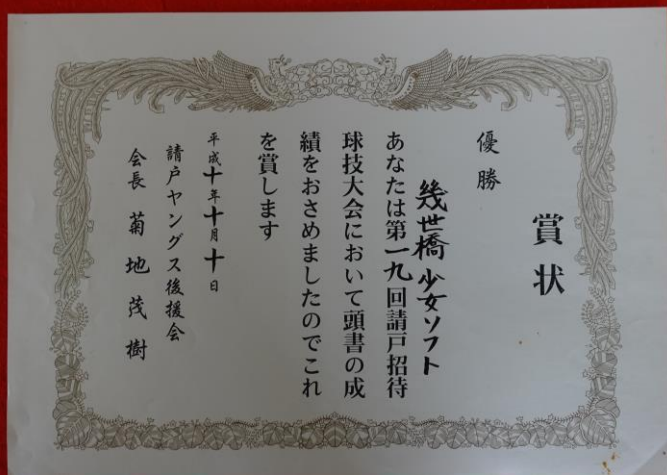 賞状
優勝
幾世橋少女ソフト
あなたは第一九回請戸招待
球技大会において頭書の成
績をおさめましたのでこれ
を賞します
平成十年十月十日
請戸ヤングス後援会
会長 菊地茂樹